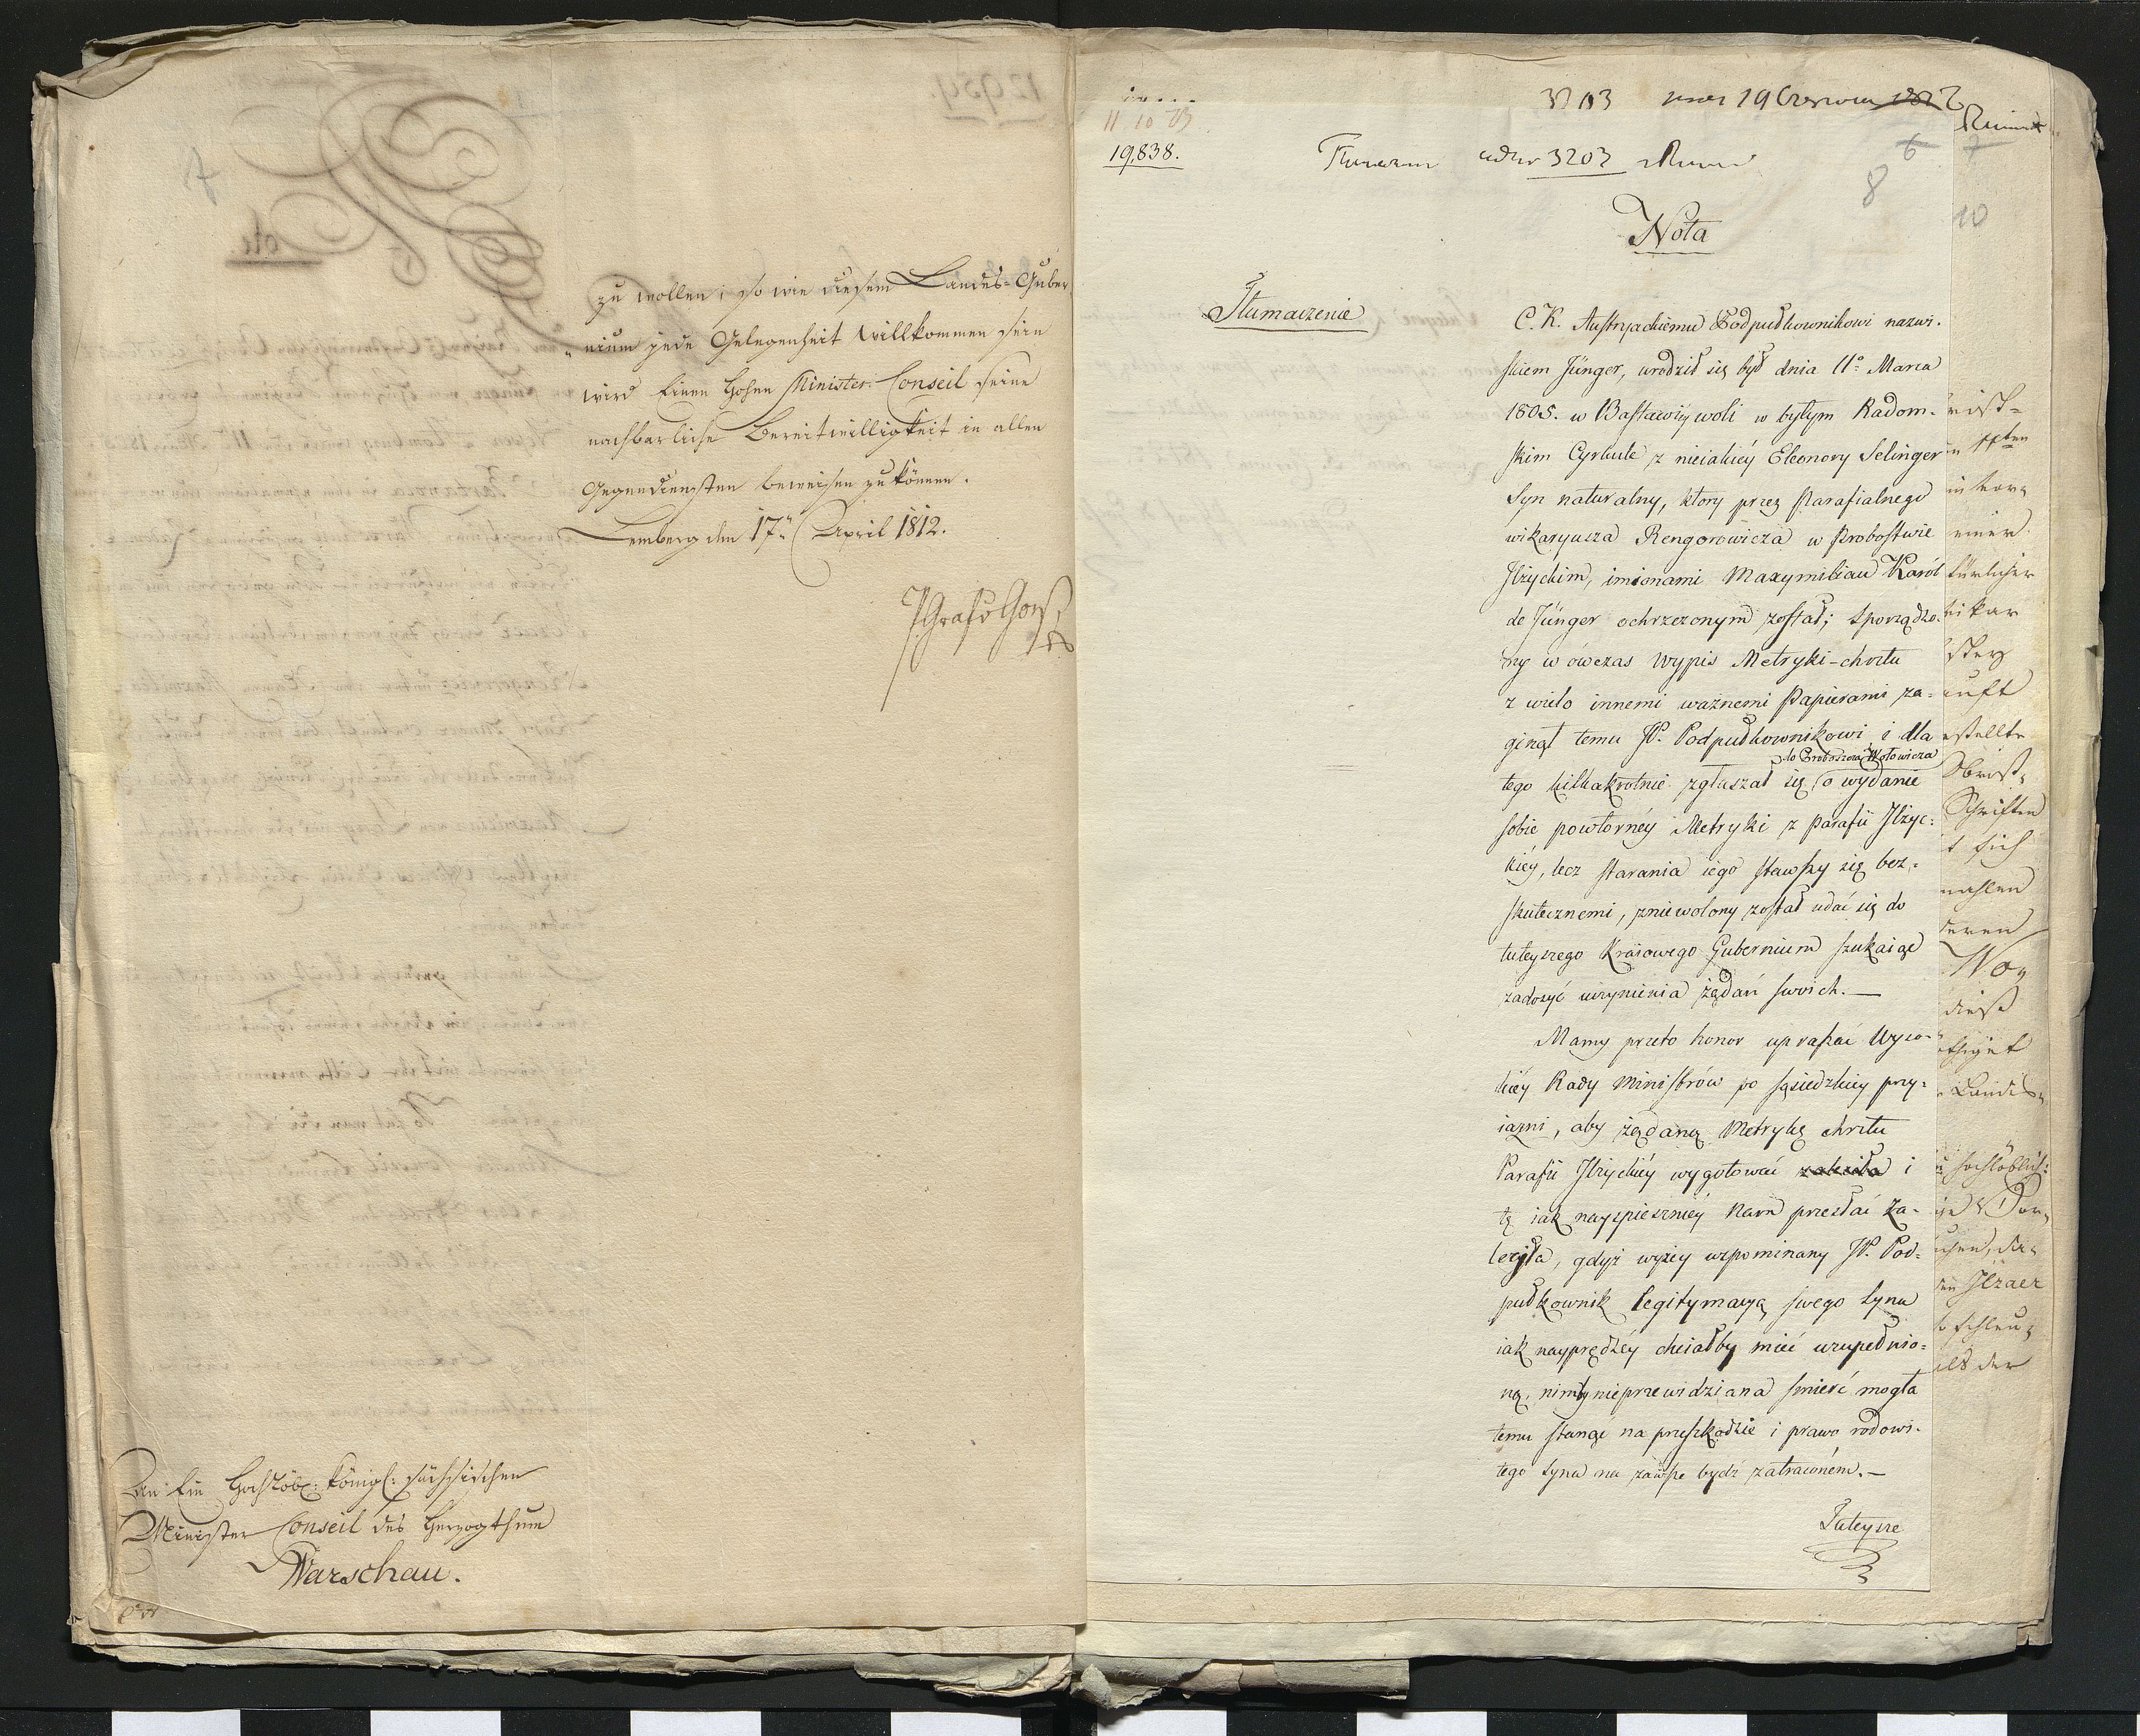 zu wollen; so wie diesem Landes-Guber
nium jede Gelegenheit willkommen sein
wird Einen Hohen Minister-Conseil seine
nachbarliche Bereitwilligkeit in allen
Gegendiensten beweisen zu können.
Lemberg den 17n April 1812.
An Ein Hochlöbl: königl: sächsischen
Minister Conseil des Herzogthum
Warschau.
12959.
3203 19 Czerwca
11 10
19,838.
3203
6 7
8
10
Nota
Tłumaczenie
C. K. Austryackiemu Podpułkownikowi nazwi-
skiem Jünger, urodził się był dnia 11o Marca
1805. w Bałtowiywoli w byłym Radom-
skim Cyrkule z nieiakiéy Eleonory Selinger
Syn naturalny, ktory przez Parafialnego
wikaryusza Rengorowicza w Probostwie
Jłżyckim, imionami Maxymilian Karól
de Jünger ochrzczonym został; sporządzo-
ny w ówczas wypis Metryki-chrztu
z wielo innemi ważnemi Papierami za-
ginął temu JP. Podpułkownikowi i dla
do Proboszcza Wołowicza
tego kilkakrotnie zgłaszał się o wydanie
sobie powtornéy Metryki z parafii Jłżyc-
kiéy, lecz starania iego stawszy się bez-
skutecznemi, zniewolony został udać się do
tuteyszego Kraiowego Gubernium szukaiąc
zadosyć uczynienia żądań swoich.—
Mamy przeto honor upraszać Wyso-
kiéy Rady Ministrów po sąsiedzkiey przy-
iaźni, aby żądaną Metrykę chrztu
Parafii Jłżyckiéy wygotować zaleciła i
tę iak nayspieszniéy Nam przesłać za-
leciła, gdyż wyżey wspominany JP. Pod-
pułkownik legitymacyą swego syna
iak nayprędzéy chciałby mieć uzupełnio-
ną, nimby nieprzewidziana śmierć mogła
temu stanąć na przeszkodzie i prawo rodowi-
tego syna na zawsze bydź zatraconém.—
rist-
11ten
einer
türlicher
vikar
auft
estellte
Obrist-
Schriften
t sich
mahlen
deren
Wo-
dieß
thigt
Landes-
hochlöbliche
Jlzaer
schleu-
als der